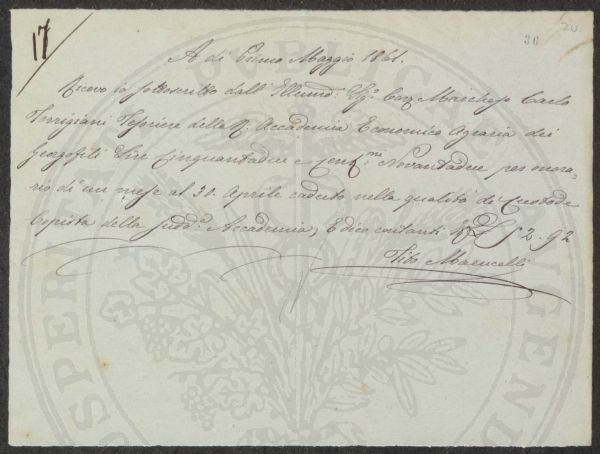 17
36
20.
A di Primo Maggio 1861.
Ricevo io sottoscritto dall' Illumo. Sigr. Cav Marchese Carlo
Torrigiani Tesoriere della R. Accademia Economico Agraria dei
Georgofili Lire Cinquantadue e Cent.mi Novantadue per onora-
rio di un mese al 30. Aprile caduto nella qualità di Custode
Copista della sudd.a Accademia, E dico contanti 52.92
Tito
PROSPERITA PUBLICAE AUGENDAE